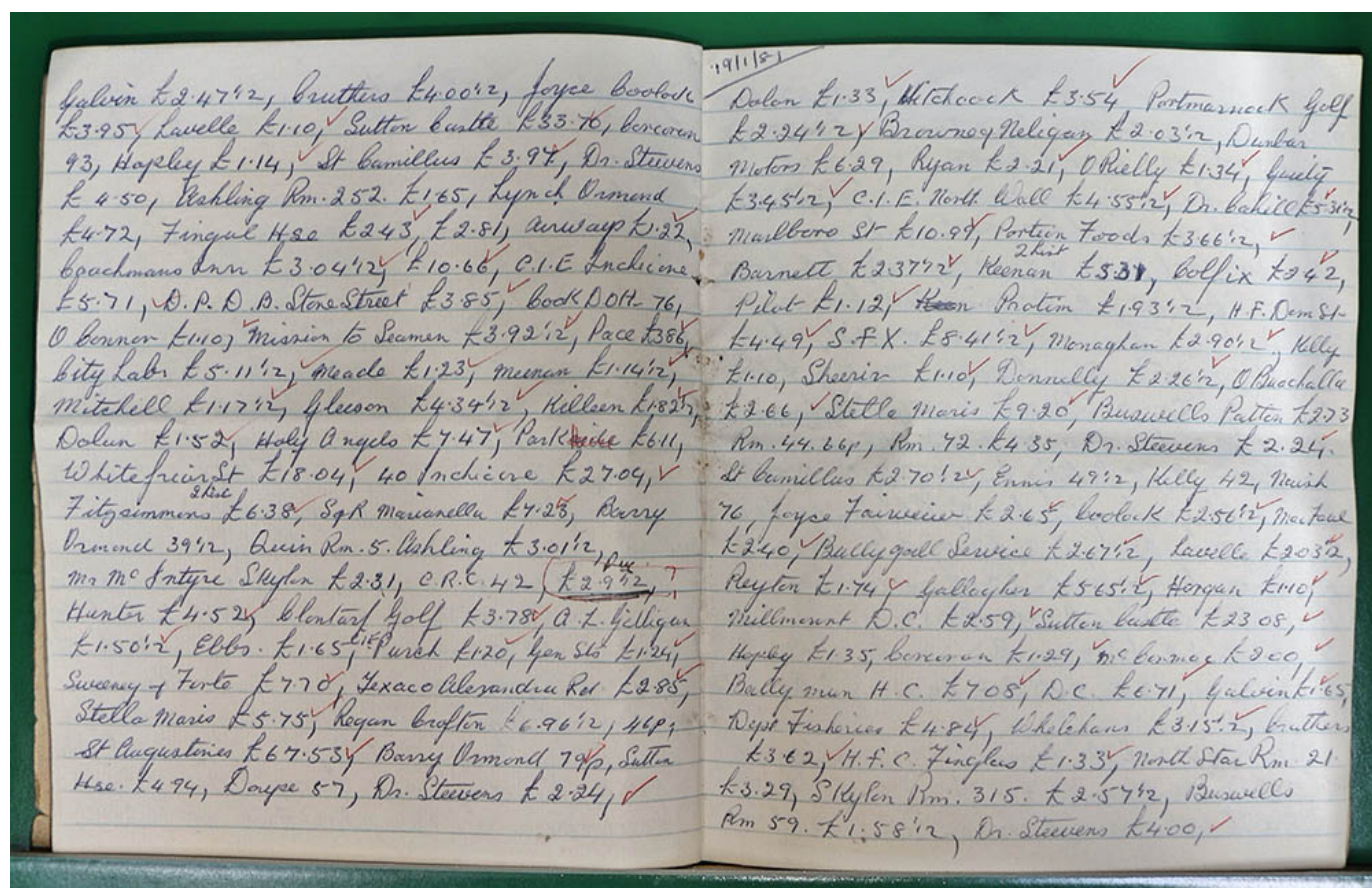 Galvin £2.47½, Cruthers £4.00½, Joyce Coolock
£3.95, Lavelle £1.10, Sutton Castle £33.76, Corcoran
93, Hopley £1.14, St Camillus £3.97, Dr. Steevens
£4.50, Ashling Rm. 252. £1.65, Lynch Ormond
£4.72, Fingal Hse £2.43, £2.81, Airways £1.22,
Coachmans Inn £3.04½, £10.66, C.I.E Inchicore
£5.71, D.P.D.B. Store Street £3.85, Cook DOH. 76,
O Connor £1.10, Mission to Seamen £3.92½, Pace £3.86,
City Labs £5.11½, Meade £1.23, Meenan £1.14½,
Mitchell £1.17½, Gleeson £4.34½, Killeen £1.82½,
Dolan £1.52, Holy Angels £7.47, Park £6.11,
Whitefriar St £18.04, 40 Inchicore £27.04,
Fitzsimmons 2 list £6.38, SGR Marianella £7.23, Barry
Ormond 39½, Quin Rm. 5. Ashling £3.01½,
Mr Mc Intyre Skylon £2.31, C.R.C. 42, £2.9½,
Hunter £4.52, Clontarf Golf £3.78, A.L. Gilligan
£1.50½, Ebbs. £1.65, Purch £1.20, Gen Sts £1.24,
Sweeney & Forte £7.70, Texaco Alexandra Rd. £2.85,
Stella Maris £5.75, Regan Crofton £6.96½, 46p,
St Augustines £67.53, Barry Ormond 79p, Sutton
Hse. £4.94, Doupe 57, Dr. Steevens £2.24,
19/1/81
Dolan £1.33, Hitchcock £3.54 Portmarnock Golf
£2.24½, Browne & Neligan £2.03½, Dunbar
Motors £6.29, Ryan £2.21, O Rielly £1.34, Guilty
£3.45½, C.I.E. North Wall £4.55½, Dr. Cahill £5.31½,
Marlboro St £10.99, Portion Foods £3.66½,
Barnett £2.37½, Keenan 2 list £5.31, Colfix £2.42,
Pilot £1.12, Protim £1.93½, H.F. Dom St
£4.49, S.F.X. £8.41½, Monaghan £2.90½, Kelly
£1.10, Sheerin £1.10, Donnelly £2.26½, O Buachalla
£2.66, Stella Maris £9.20, Buswells Patton £2.73
Rm. 44. 66p, Rm. 72. £4.35, Dr. Steevens £2.24.
St Camillus £2.70½, Ennis 49½, Kelly 42, Naish
76, Joyce Fairview £2.65, Coolock £2.56½, Mac
£2.40, Ballygall Service £2.67½, Lavelle £2.03½,
Peyton £1.74, Gallagher £5.65½, Horgan £1.10,
Millmount D.C. £2.59, Sutton Castle £23.08,
Hopley £1.35, Corcoran £1.29, McCormac £2.00,
Bally mun H.C. £7.08, D.C. £6.71, Galvin £1.65,
Dept Fisheries £4.84, Whelehans £3.15½, Cruthers
£3.62, H.F.C. Finglas £1.33, North Star Rm. 21.
£3.29, Skylon Rm. 315. £2.57½, Buswells
Rm 59. £1.58½, Dr. Steevens £4.00,